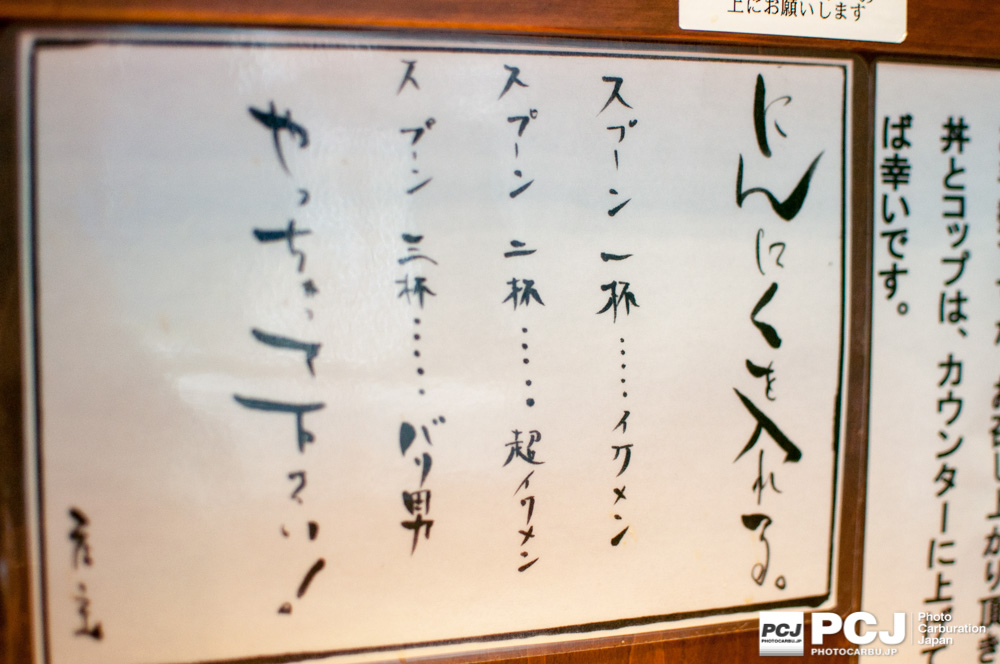 上にお願いします
にんにくを入れる。
スプーン一杯……イケメン
スプーン二杯……超イケメン
スプーン三杯……バリ男
やっちゃって下さい!
店主
丼とコップは、カウンターに上
ば幸いです。
PCJ
PCJ
Photo
Carburation
Japan
PHOTOCARBU.JP